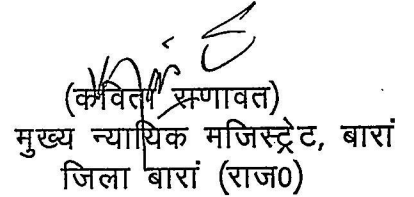 (कविता राणावत)
मुख्य न्यायिक मजिस्ट्रेट, बारां
जिला बारां (राज0)